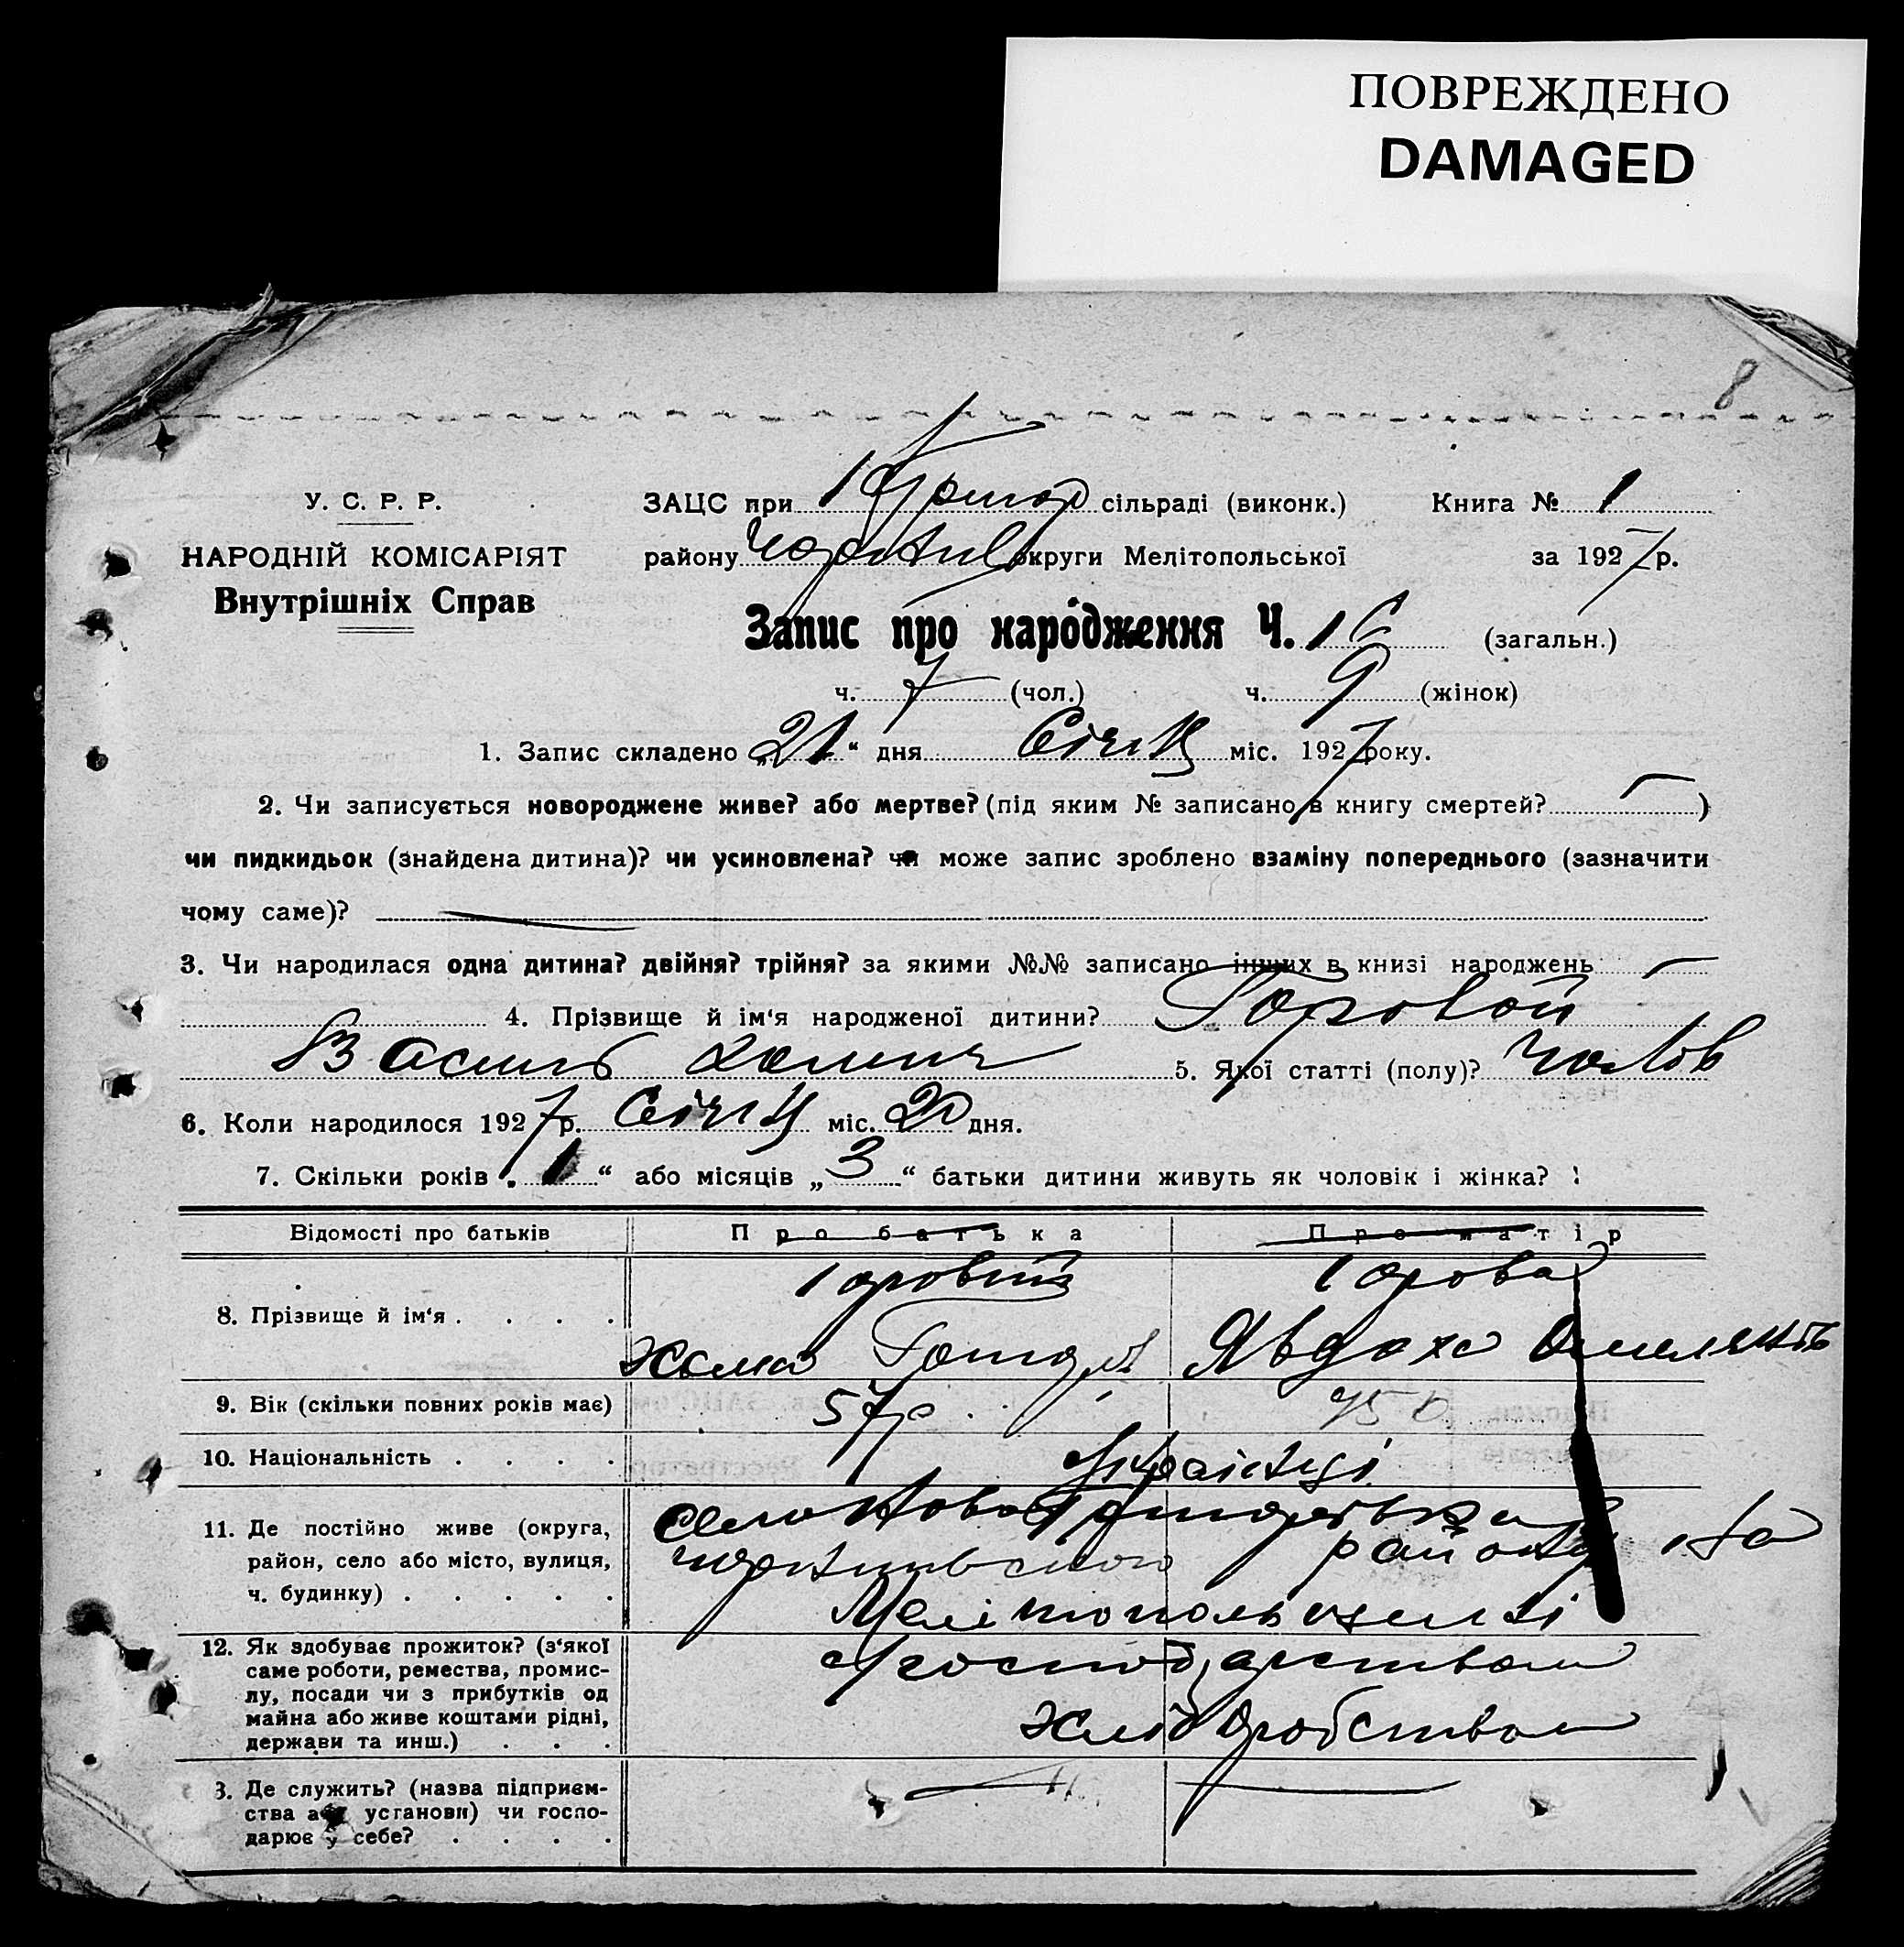 ПОВРЕЖДЕНО
DAMAGED
8
У. С. Р. Р.
НАРОДНІЙ КОМІСАРІЯТ
Внутрішніх Справ
ЗАЦС при 1 Григор сільраді (виконк.) Книга № 1
району округи Мелітопольської за 1927 р.
Запис про народження Ч. 16 (загальн.)
ч. 7 (чол.) ч. 9 (жінок)
1. Запис складено „21“ дня Січня міс. 1927 року.
2. Чи записується новороджене живе? або мертве? (під яким № записано в книгу смертей? — )
чи пидкидьок (знайдена дитина)? чи усиновлена? чи може запис зроблено взаміну попереднього (зазначити
чому саме)? —
3. Чи народилася одна дитина? двійня? трійня? за якими №№ записано інших в книзі народжень —
4. Прізвище й ім‘я народженої дитини? Горовой
Василь 5. Якої статті (полу)? Чолов
6. Коли народилося 1927 р. Січня міс. 20 дня.
7. Скільки років „1“ або місяців „3“ батьки дитини живуть як чоловік і жінка?
Відомості про батьків Про батька Про матір
8. Прізвище й ім‘я . . . . Горовий Горова
Хома Явдоха
9. Вік (скільки повних років має) 57р 45 р
10. Національність . . . . Українці
11. Де постійно живе (округа, село Ново Григорівка
район, село або місто, вулиця, района на
ч. будинку) . . . . . Мелітопольщені
12. Як здобуває прожиток? (з‘якої господарством
саме роботи, ремества, промис-
лу, посади чи з прибутків од хлібобробством
майна або живе коштами рідні,
держави та инш.) . . .
3. Де служить? (назва підприєм- — —
ства або установи) чи госпо-
дарює у себе? . . . .